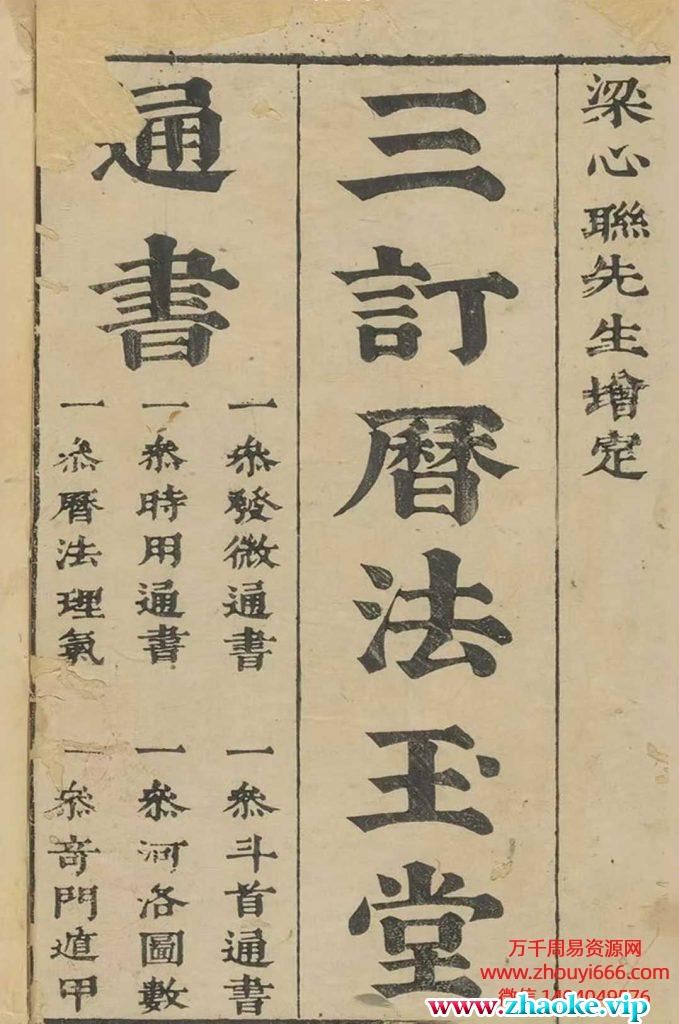 梁心聯先生增定
三訂曆法玉堂
通書
一叅發微通書
一叅斗首通書
一叅時用通書
一叅河洛圖數
一叅曆法理氣
一叅奇門遁甲
万千周易资源网
www.zhouyi666.com
www.zhaoke.vip